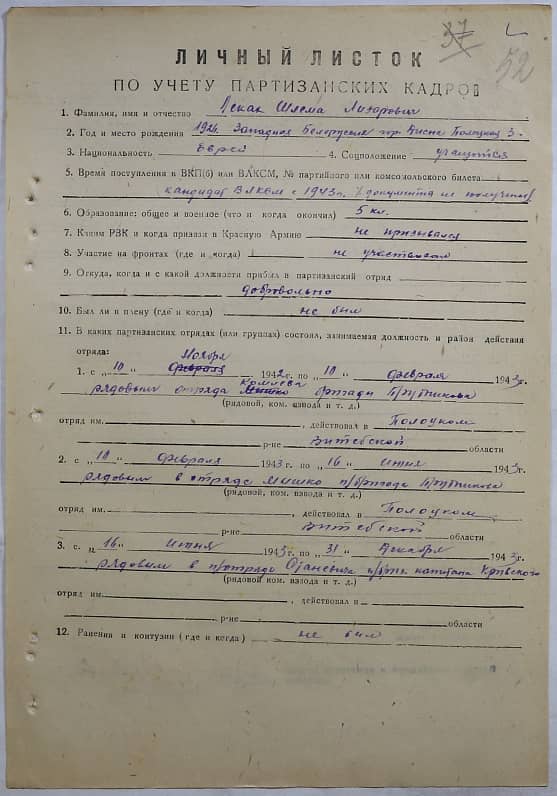 37
52
ЛИЧНЫЙ ЛИСТОК
ПО УЧЕТУ ПАРТИЗАНСКИХ КАДРОВ
1. Фамилия, имя и отчество Шлема
2. Год и место рождения 1926. Западная Белоруссия гор. Полоцкой
3. Национальность Еврей 4. Соцположение учащийся
5. Время поступления в ВКП(б) или ВЛКСМ, № партийного или комсомольского билета
кандидат ВЛКСМ с 1943г. документа не получил
6. Образование: общее и военное (что и когда окончил) 5 кл.
7. Каким РВК и когда призван в Красную Армию не призывался
8. Участие на фронтах (где и когда) не участвовал
9. Откуда, когда и с какой должности прибыл в партизанский отряд
добровольно
10. Был ли в плену (где и когда) не был
11. В каких партизанских отрядах (или группах) состоял, занимаемая должность и район действия
отряда: Ноября
1. с „10 “ февраля 1942 г. по „10 “ февраля 1943 г.
рядовым отряда бригады
(рядовой, ком. взвода и т. д.)
отряд им. , действовал в Полоцком
р-не Витебской области
2. с „10 “ февраля 1943 г. по „16 “ июня 1943 г.
рядовым в отряде Мишко
(рядовой, ком. взвода и т. д.)
отряд им. , действовал в Полоцком
р-не Витебской области
3. с „16 “ июня 1943 г. по „31 “ декабря 1943 г.
рядовым в капитана
(рядовой ком. взвода и т. д.)
отряд им. , действовал в
р-не области
12. Ранения и контузии (где и когда) не был